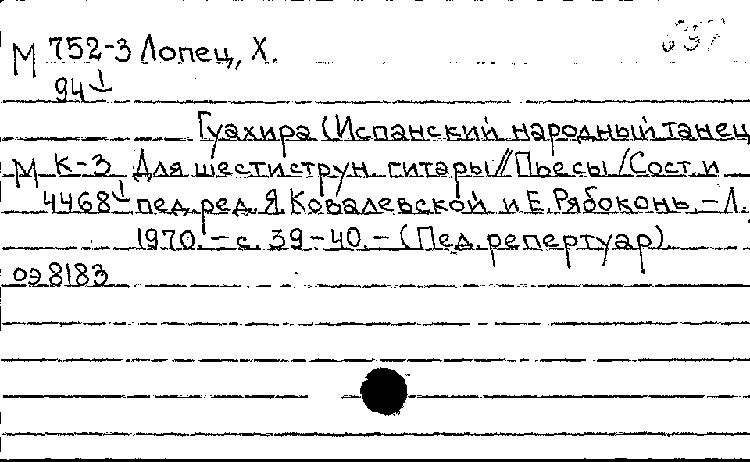 М 752-3 Лопец, Х.
94
Гуахира (Испанский народный танец
М К-3 Для шестиструн. гитары // Пьесы / Сост. и
4468 пед. ред. Я. Ковалевской и Е. Рябоконь. – Л.
1970. – с. 39-40. – (Пед. репертуар)
оэ 8183